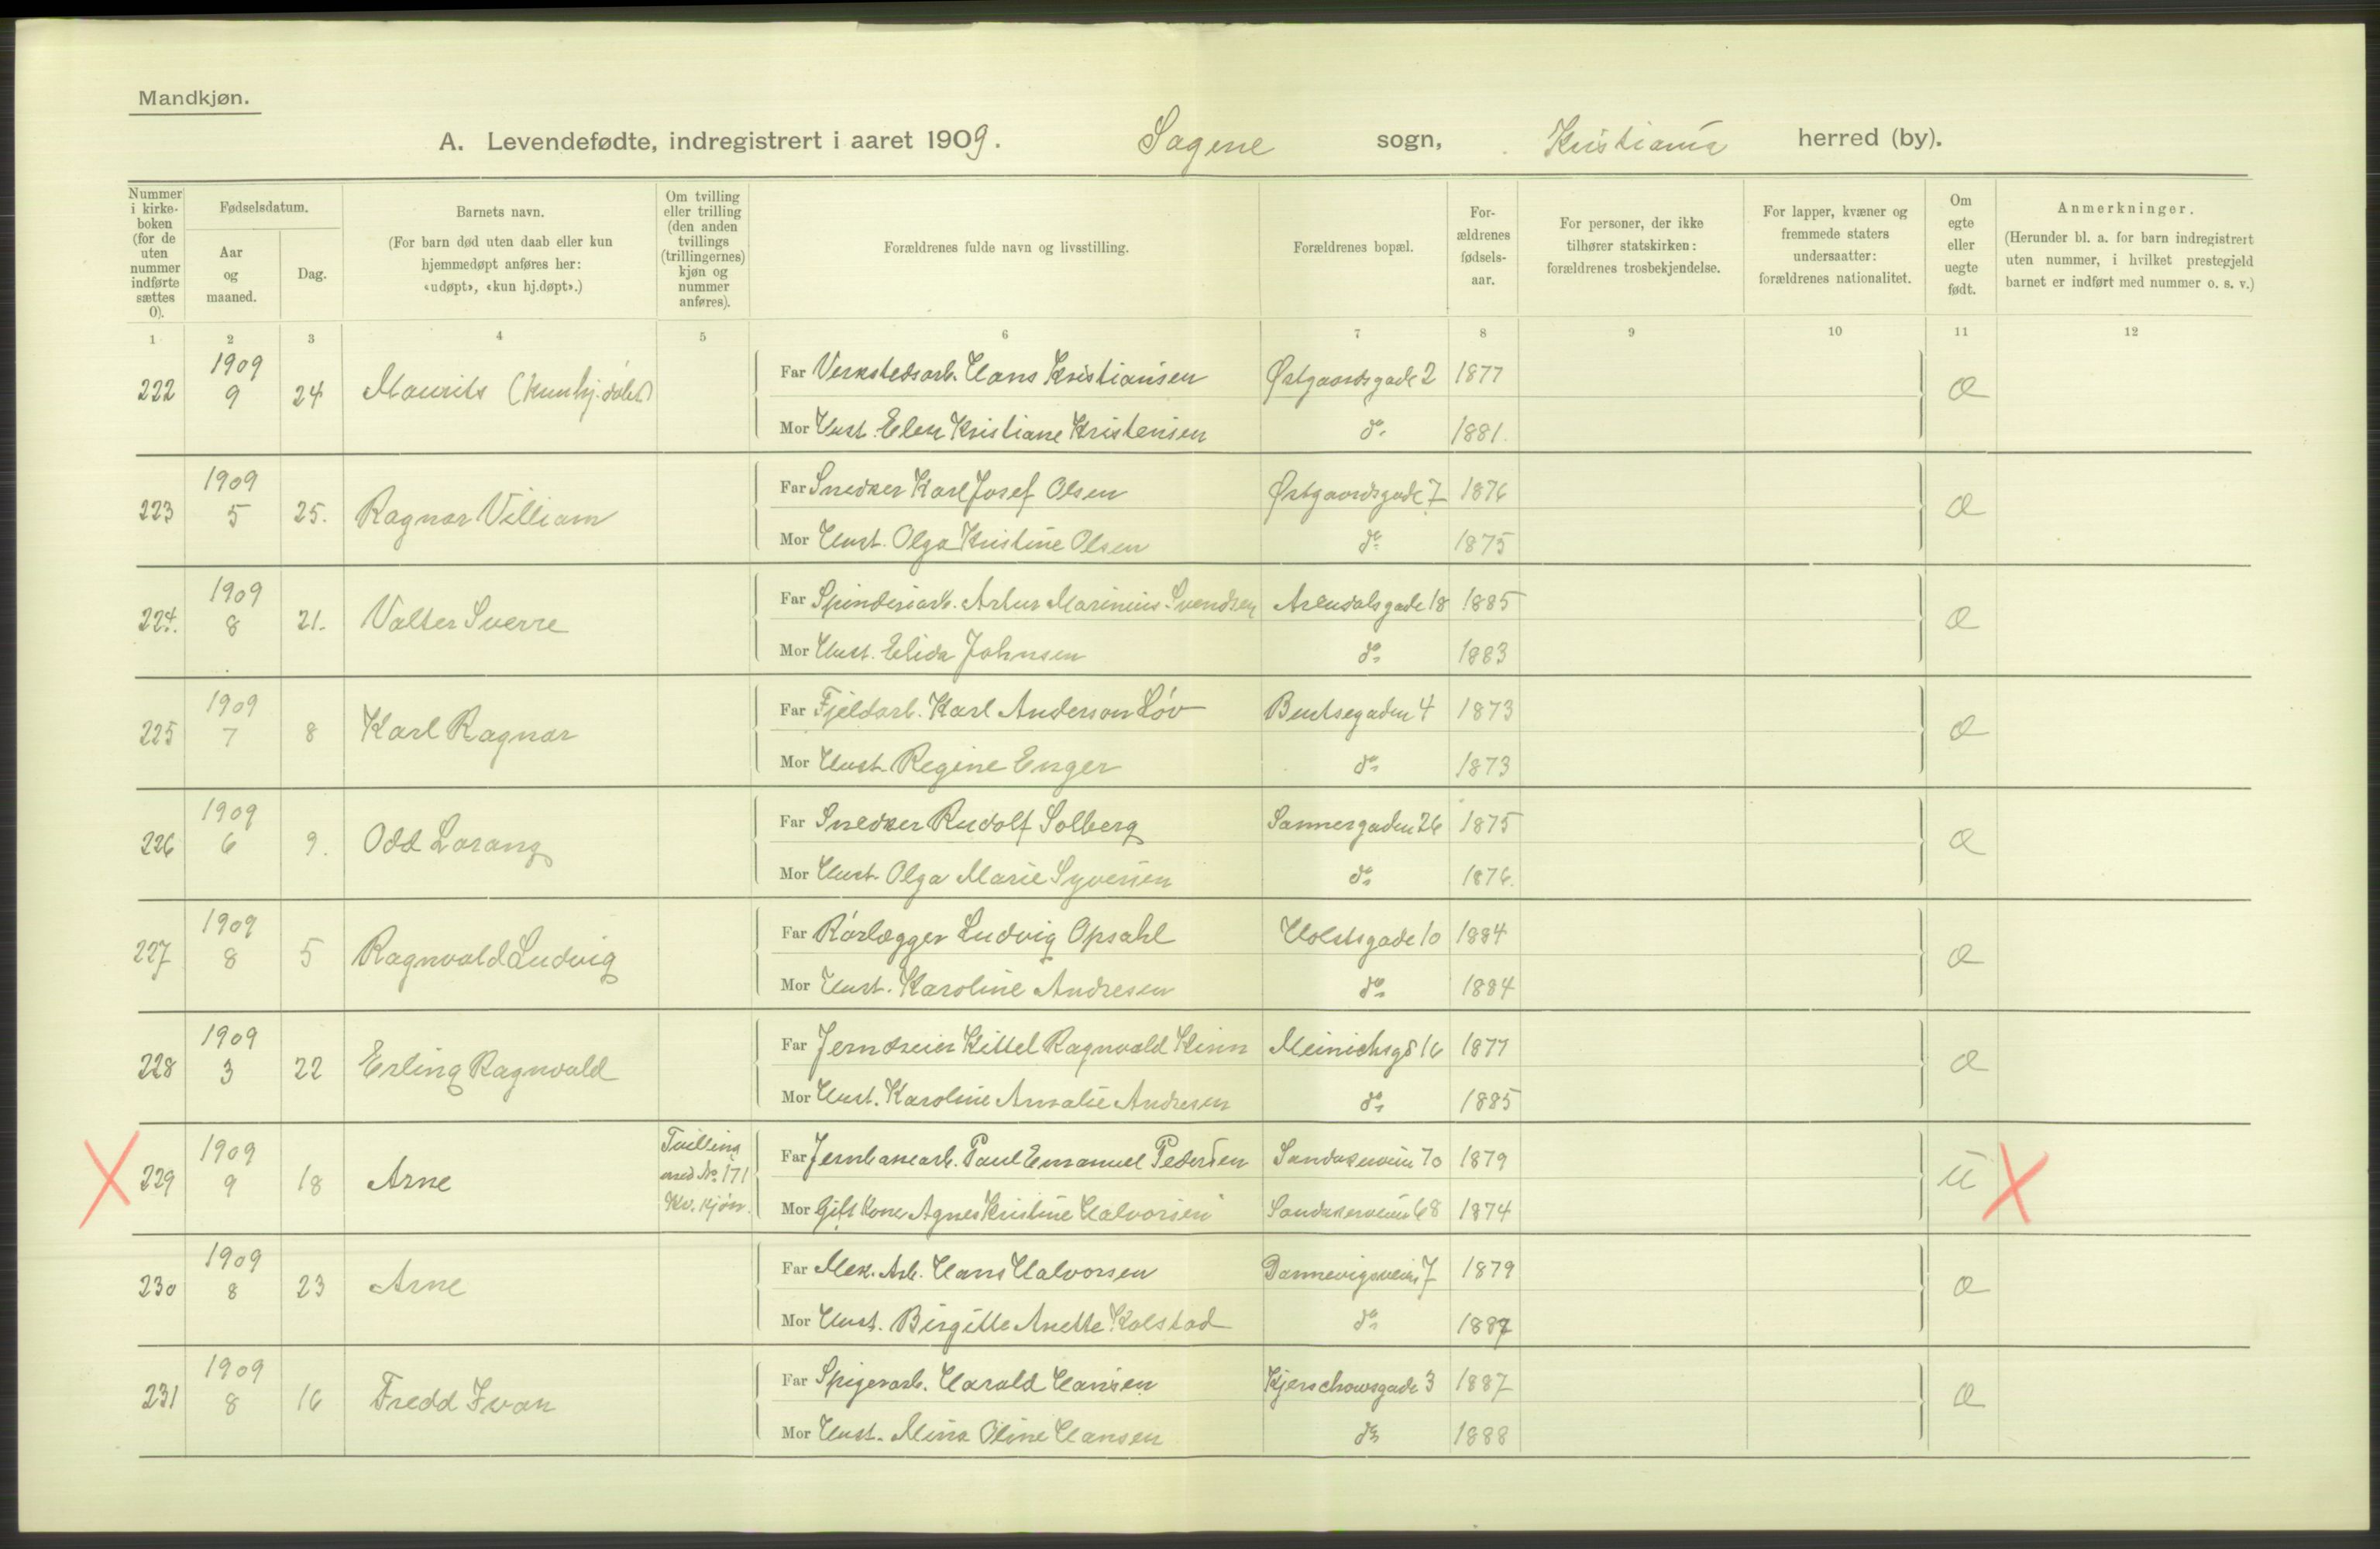 Mandkjøn.
A. Levendefødte, indregistrert i aaret 1909. Sagene sogn, Kristiania herred (by).
Nummer i kirkeboken (for de uten nummer indførte sættes 0).
Fødselsdatum.
Aar og maaned.
Dag.
Barnets navn.
(For barn død uten daab eller kun hjemmedøpt anføres her: «udøpt», «kun hj.døpt».)
Om tvilling eller trilling (den anden tvillings (trillingernes) kjøn og nummer anføres).
Forældrenes fulde navn og livsstilling.
Forældrenes bopæl.
Forældrenes fødselsaar.
For personer, der ikke tilhører statskirken: forældrenes trosbekjendelse.
For lapper, kvæner og fremmede staters undersaatter: forældrenes nationalitet.
Om egte eller uegte født.
Anmerkninger.
(Herunder bl. a. for barn indregistrert uten nummer, i hvilket prestegjeld barnet er indført med nummer o. s. v.)
1 2 3 4 5 6 7 8 9 10 11 12
222 1909 9 24 Maurits (kun hj. døbt) Far Verkstedsarb. Hans Kristiansen Østgaardsgade 2 1877 Æ
Mor Hust. Elen Kristiane Kristensen do 1881.
223 1909 5 25. Ragnar Villiam Far Snedker Karl Josef Olsen Østgaardsgade 7 1876 Æ
Mor Hust. Olga Kristine Olsen do 1875
224. 1909 8 21. Valter Sverre Far Spinderiarb. Artur Marinius Svendsen Arendalsgade 18 1885 Æ
Mor Hust. Elida Johnsen do 1883
225 1909 7 8 Karl Ragnar Far Fjeldarb. Karl Anderson Löv Bentsegaden 4 1873 Æ
Mor Hust. Regine Enger do 1873
226 1909 6 9. Odd Lorang Far Snedker Rudolf Solberg Sannergaden 26 1875 Æ
Mor Hust. Olga Marie Syversen do 1876.
227 1909 8 5 Ragnvald Ludvig Far Rörlægger Ludvig Opsahl Holstsgade 10 1884 Æ
Mor Hust. Karoline Andresen do 1884
228 1909 3 22 Erling Ragnvald Far Jerndreier Kittel Ragnvald Kinn Meinichsgd 16 1877 Æ
Mor Hust. Karoline Amalie Andresen do 1885
229 1909 9 18 Arne Tvilling med No 171 Kv. kjøn. Far Jernbanearb. Paul Emanuel Pedersen Sandakerveien 70 1879 U
Mor Gift Kone Agnes Kristine Halvorsen Sandakerveien 68 1874
230 1909 8 23 Arne Far Mek. Arb. Hans Halvorsen Dannevigsveien 7 1879 Æ
Mor Hust. Birgitte Anette Kolstad do 1887
231 1909 8 16 Fredd Ivan Far Spigerarb. Harald Hansen Kjerschowsgade 3 1887 Æ
Mor Hust. Mina Oline Hansen do 1888